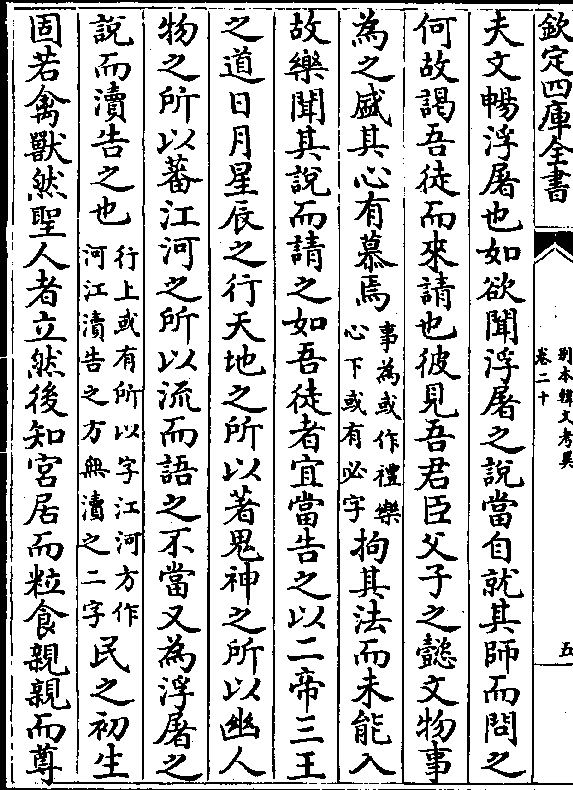 欽定四庫全書
別本韓文考異
卷二十
五
夫文暢浮屠也如欲聞浮屠之說當自就其師而問之
何故謁吾徒而來請也彼見吾君臣父子之懿文物事
為之盛其心有慕焉事為或作禮樂心下或有必字拘其法而未能入
故樂聞其說而請之如吾徒者宜當告之以二帝三王
之道日月星辰之行天地之所以著鬼神之所以幽人
物之所以蕃江河之所以流而語之不當又為浮屠之
說而瀆告之也行上或有所以字江河方作河江瀆告之方無瀆之二字民之初生
固若禽獸然聖人者立然後知宮居而粒食親親而尊